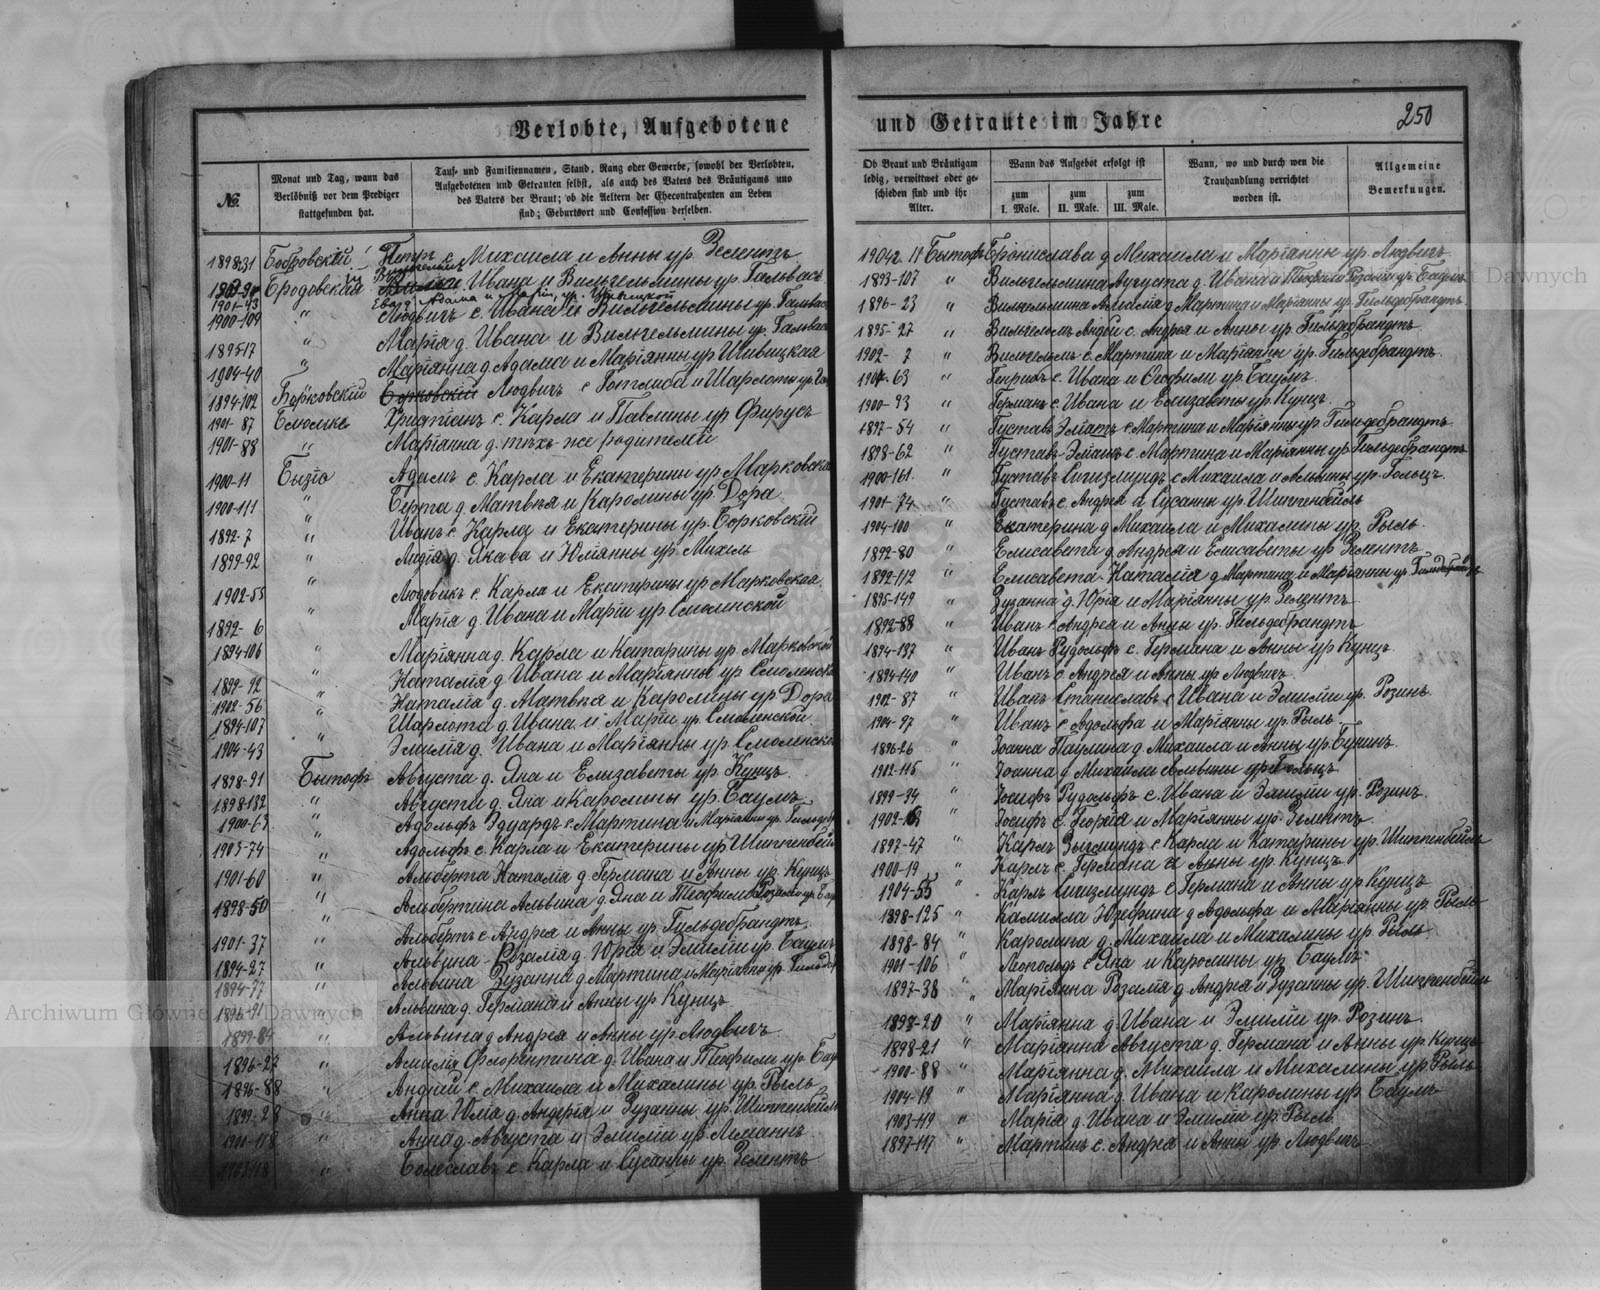 Verlobte, Aufgebotene
№.
Monat und Tag, wann das
Verlöbniß vor dem Prediger
stattgefunden hat.
Tauf- und Familiennamen, Stand, Rang oder Gewerbe, sowohl der Verlobten,
Aufgebotenen und Getrauten selbst, als auch des Vaters des Bräutigams und
des Vaters der Braut; ob die Aeltern der Ehecontrahenten am Leben
sind; Geburtsort und Confession derselben.
1898-31 Бобровский Петръ с. Михаила и Анны ур. Зелентъ
Бродовская Ивана и Вильгельмины ур. Гальвасъ
1901-43 Ева Адама и Марiи, ур.
1900-109 " Людвигъ с. Ивана и Вильгельмины ур. Гальвас
1895-17 " Марiя д. Ивана и Вильгельмины ур. Гальвас
1904-40 " Марiянна д. Адама и Марiянны ур. Шивицкая
1894-102 Борковскiй Людвигъ с. Готлиба и Шарлоты ур.
1901-87 Блюмке Христiанъ с. Карла и Павлины ур. Фирусъ
1901-88 " Марiанна д. тѣхъ же родителей
1900-11 Быто Адамъ с. Карла и Екатерины ур. Марковская
1900-111 " Берта д. Матвѣя и Каролины ур. Дора
1892-7 " Иванъ с. Карла и Екатерины ур. Борковскiй
1899-92 " Лидiя д. Якова и Юлiянны ур. Михель
1902-55 " Людовикъ с. Карла и Екатерины ур. Марковская
1892-6 " Марiя д. Ивана и Марiи ур. Смолинской
1894-106 " Марiянна д. Карла и Катарины ур. Марковской
1899-92 " Наталiя д. Ивана и Марiянны ур. Смоленска
1902-56 " Наталiя д. Матвѣя и Каролины ур. Дора
1894-107 " Шарлота д. Ивана и Марiи ур. Смоленской
1904-43 " Эмилiя д. Ивана и Марiянны ур. Смоленско
1898-91 Бытофъ Августа д. Яна и Елизаветы ур. Кунцъ
1898-132 " Августа д. Яна и Каролины ур. Баумъ
1900-63 " Адольфъ Эдуардъ с. Мартина и Марiанны ур. Гильдеб
1903-74 " Адольфъ с. Карла и Екатерины ур. Шиттенбейл
1901-60 " Альберта Наталiя д. Германа и Анны ур. Кунцъ
1898-50 " Альбертина Альвина д. Яна и Теофили Розалiи ур. Бау
1901-37 " Альбертъ с. Андрея и Анны ур. Гильдебрандтъ
1894-27 " Альвина-Розалiя д. Юрiя и Эмилiи ур. Баумъ
1894-77 " Альвина Зузанна д. Мартина и Марiанны ур. Гильдеб
1896-91 " Альвина д. Германа и Анны ур. Кунцъ
1899-84 " Альвина д. Андрея и Анны ур. Людвигъ
1896-27 " Амалiя Флорентина д. Ивана и Теофили ур. Бау
1896-88 " Андрiй с. Михаила и Михалины ур. Рыль
1899-28 " Анна Юлiя д. Андрея и Зузанны ур. Шиттенбейль
1900-118 " Анна д. Августа и Эмилiи ур. Леманнъ
1903-18 " Болеславъ с. Карла и Сусанны ур. Зелентъ
und Getraute im Jahre
250
Ob Braut und Bräutigam
ledig, verwittwet oder ge-
schieden sind und ihr
Alter.
Wann das Aufgebot erfolgt ist
zum
I. Male.
zum
II. Male.
zum
III. Male.
Wann, wo und durch wen die
Trauhandlung verrichtet
worden ist.
Allgemeine
Bemerkungen.
Бытофъ Бронислава д. Михаила и Марiянны ур. Людвигъ
1893-107 " Вильгельмина Августа д. Ивана и Теофили Розалiи ур. Баумъ
1896-23 " Вильгельмина Амалiя д. Мартина и Марiянны ур. Гильдебрандтъ
1895-27 " Вильгельмъ Андрей с. Андрея и Анны ур. Гильдебрандтъ
1902-7 " Вильгельмъ с. Мартина и Марiянны ур. Гильдебрандтъ
1901-63 " Генрихъ с. Ивана и Теофили ур. Баумъ
1900-93 " Германъ с. Ивана и Елизаветы ур. Кунцъ
1897-54 " Густавъ с. Мартина и Марiянны ур. Гильдебрандтъ
1898-62 " Густавъ-Эмилъ с. Мартина и Марiянны ур. Гильдебрандтъ
1900-161 " Густавъ Сигизмундъ с. Михаила и Альвины ур. Гольцъ
1901-74 " Густавъ с. Андрея и Сусанны ур. Шиттенбейль
1904-100 " Екатерина д. Михаила и Михалины ур. Рыль
1892-80 " Елисавета д. Андрея и Елисаветы ур. Зелентъ
1892-112 " Елисавета-Наталiя д. Мартина и Марiянны ур. Гильдебрандт
1895-149 " Зузанна д. Юрiя и Марiянны ур. Зелентъ
1892-88 " Иванъ с. Андрея и Анны ур. Гильдебрандтъ
1894-137 " Иванъ Рудольфъ с. Германа и Анны ур. Кунцъ
1894-140 " Иванъ с. Андрея и Анны ур. Людвигъ
1902-87 " Иванъ Станиславъ с. Ивана и Эмилiи ур. Розинъ
1904-97 " Иванъ с. Адольфа и Марiянны ур. Рыль
1896-26 " Iоанна Паулина д. Михаила и Анны ур. Бунинъ
1902-115 " Iоанна д. Михаила Альвины ур. Гольцъ
1899-34 " Iосифъ Рудольфъ с. Ивана и Эмилiи ур. Розинъ
" Iосифъ с. Георгiя и Марiянны ур. Зелентъ
1897-47 " Карлъ Зыгмундъ с. Карла и Катарины ур. Шиттенбейль
1900-19 " Карлъ с. Германа и Анны ур. Кунцъ
1904-55 " Карлъ Сигизмундъ с. Германа и Анны ур. Кунцъ
1898-125 " Камилла Юзефина д. Адольфа и Марiянны ур. Рыль
1898-84 " Каролина д. Михаила и Михалины ур. Рыль
1901-106 " Леопольдъ с. Яна и Каролины ур. Баумъ
1897-38 " Марiянна Розалiя д. Андрея и Зузанны ур. Шиттенбейль
1898-20 " Марiянна д. Ивана и Эмилiи ур. Розинъ
1898-21 " Марiянна Августа д. Германа и Анны ур. Кунцъ
1900-88 " Марiянна д. Михаила и Михалины ур. Рыль
1904-19 " Марiянна д. Ивана и Каролины ур. Баумъ
1903-119 " Марiя д. Ивана и Эмилiи ур. Рыль
1897-117 " Мартинъ с. Андрея и Анны ур. Людвигъ
Archiwum Główne Akt Dawnych